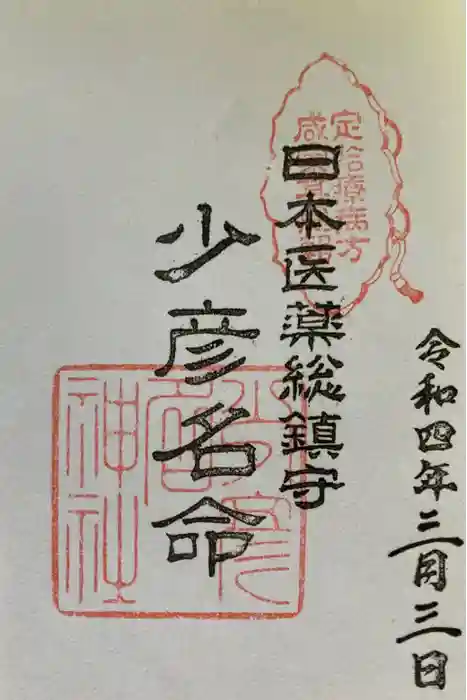 令和四年三月三日
定療病方
日本医薬総鎮守
少彦名命
少彦
名
神社